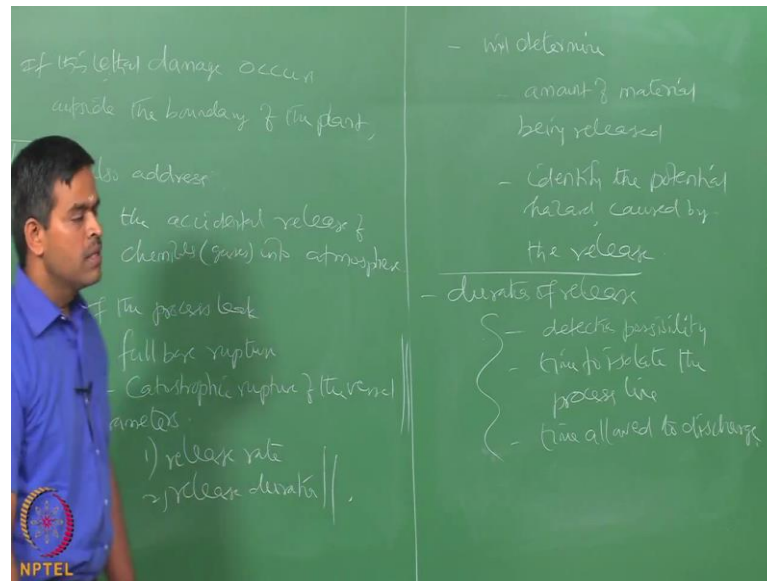 If this lethal damage occurs
outside the boundary of the plant,
also address
the accidental release of
chemicals (gases) into atmosphere
If the process leak
full bore rupture
- Catastrophic rupture of the vessel
1) release rate
2) release duration
- will determine
- amount of material
being released
- identify the potential
hazard caused by
the release.
- duration of release
- detection possibility
- time to isolate the
process line
- time allowed to discharge
NPTEL